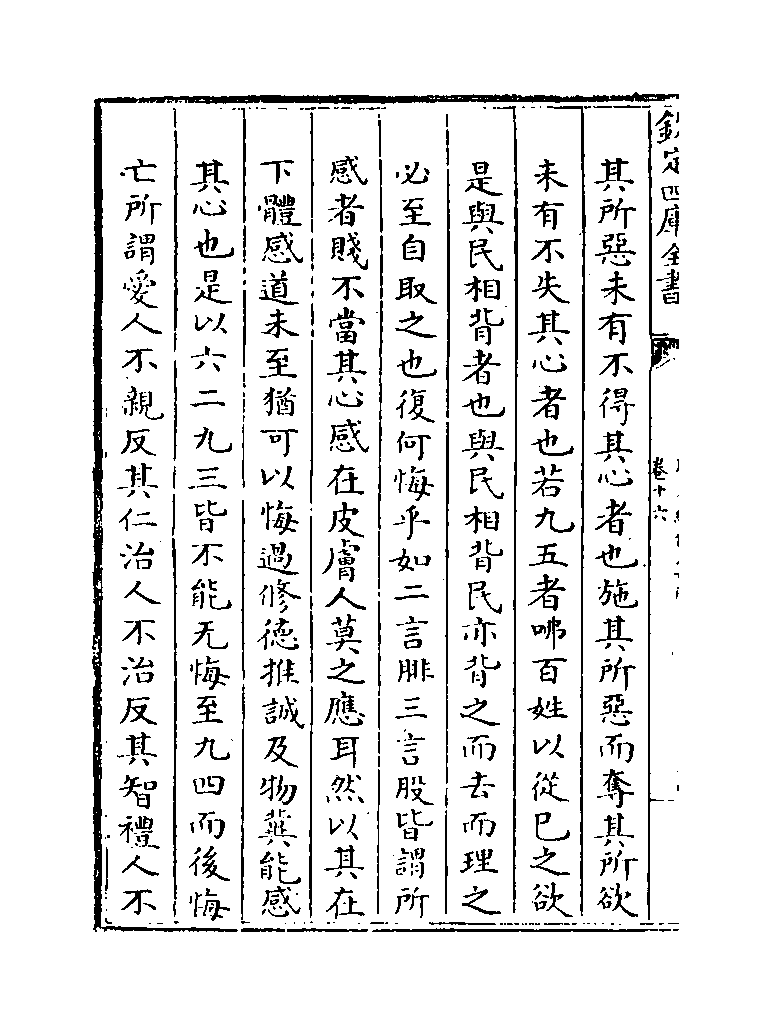 欽定四庫全書
卷十六
其所惡未有不得其心者也施其所惡而奪其所欲
未有不失其心者也若九五者咈百姓以從巳之欲
是與民相背者也與民相背民亦背之而去而理之
必至自取之也復何悔乎如二言腓三言股皆謂所
感者賤不當其心感在皮膚人莫之應耳然以其在
下體感道未至猶可以悔過修德推誠及物冀能感
其心也是以六二九三皆不能无悔至九四而後悔
亡所謂愛人不親反其仁治人不治反其智禮人不